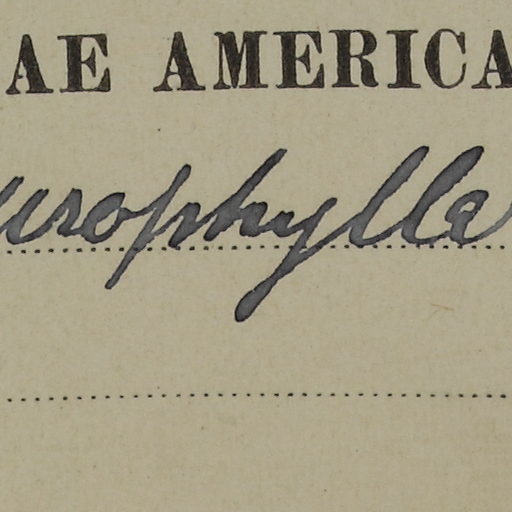 AE AMERICA
urophylla